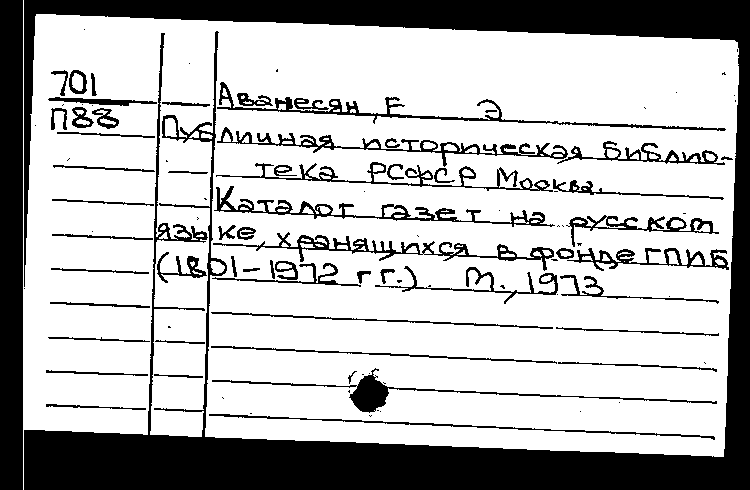 701
П88
Аванесян, Е Э
Публичная историческая библио-
тека РСФСР, Москва.
Каталог газет на русском
языке, хранящихся в фонде ГПИБ
(1801-1972 гг.) М., 1973